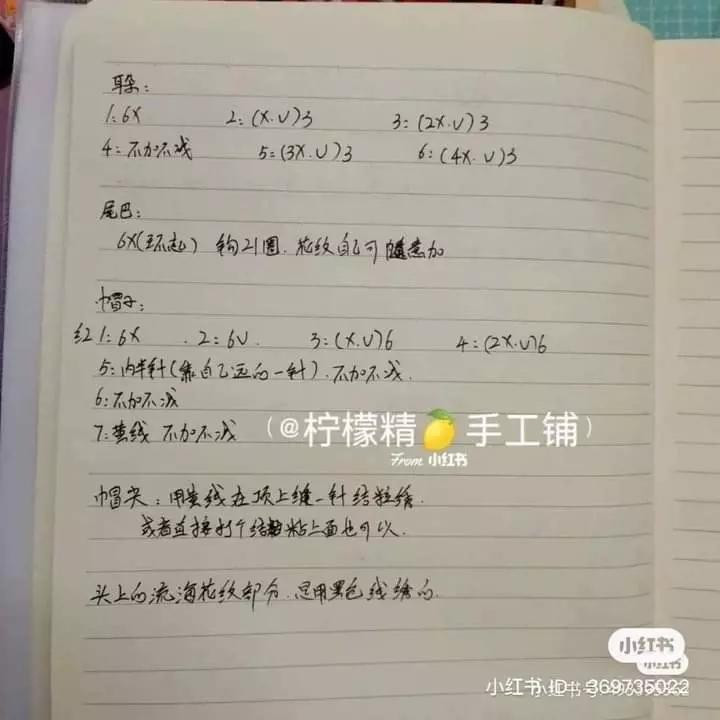 耳朵:
1:6X 2:(X.V)3 3:(2X.V)3
4:不加不减 5:(3X.V)3 6:(4X.V)3
尾巴:
6X(环起) 钩21圈.花纹自己可随意加
帽子:
红1:6X . 2:6V. 3:(X.V)6 4:(2X.V)6
5:内半针(靠自己远的一针).不加不减.
6:不加不减
7:黄线 不加不减
(@柠檬精🍋手工铺)
From 小红书
帽尖:用黄线在顶上缝一针结粒绣.
或者直接打个结粘上面也可以.
头上的流海花纹部分.是用黑色线绣的.
小红书
小红书
小红书 ID: 369735022
小红书号: